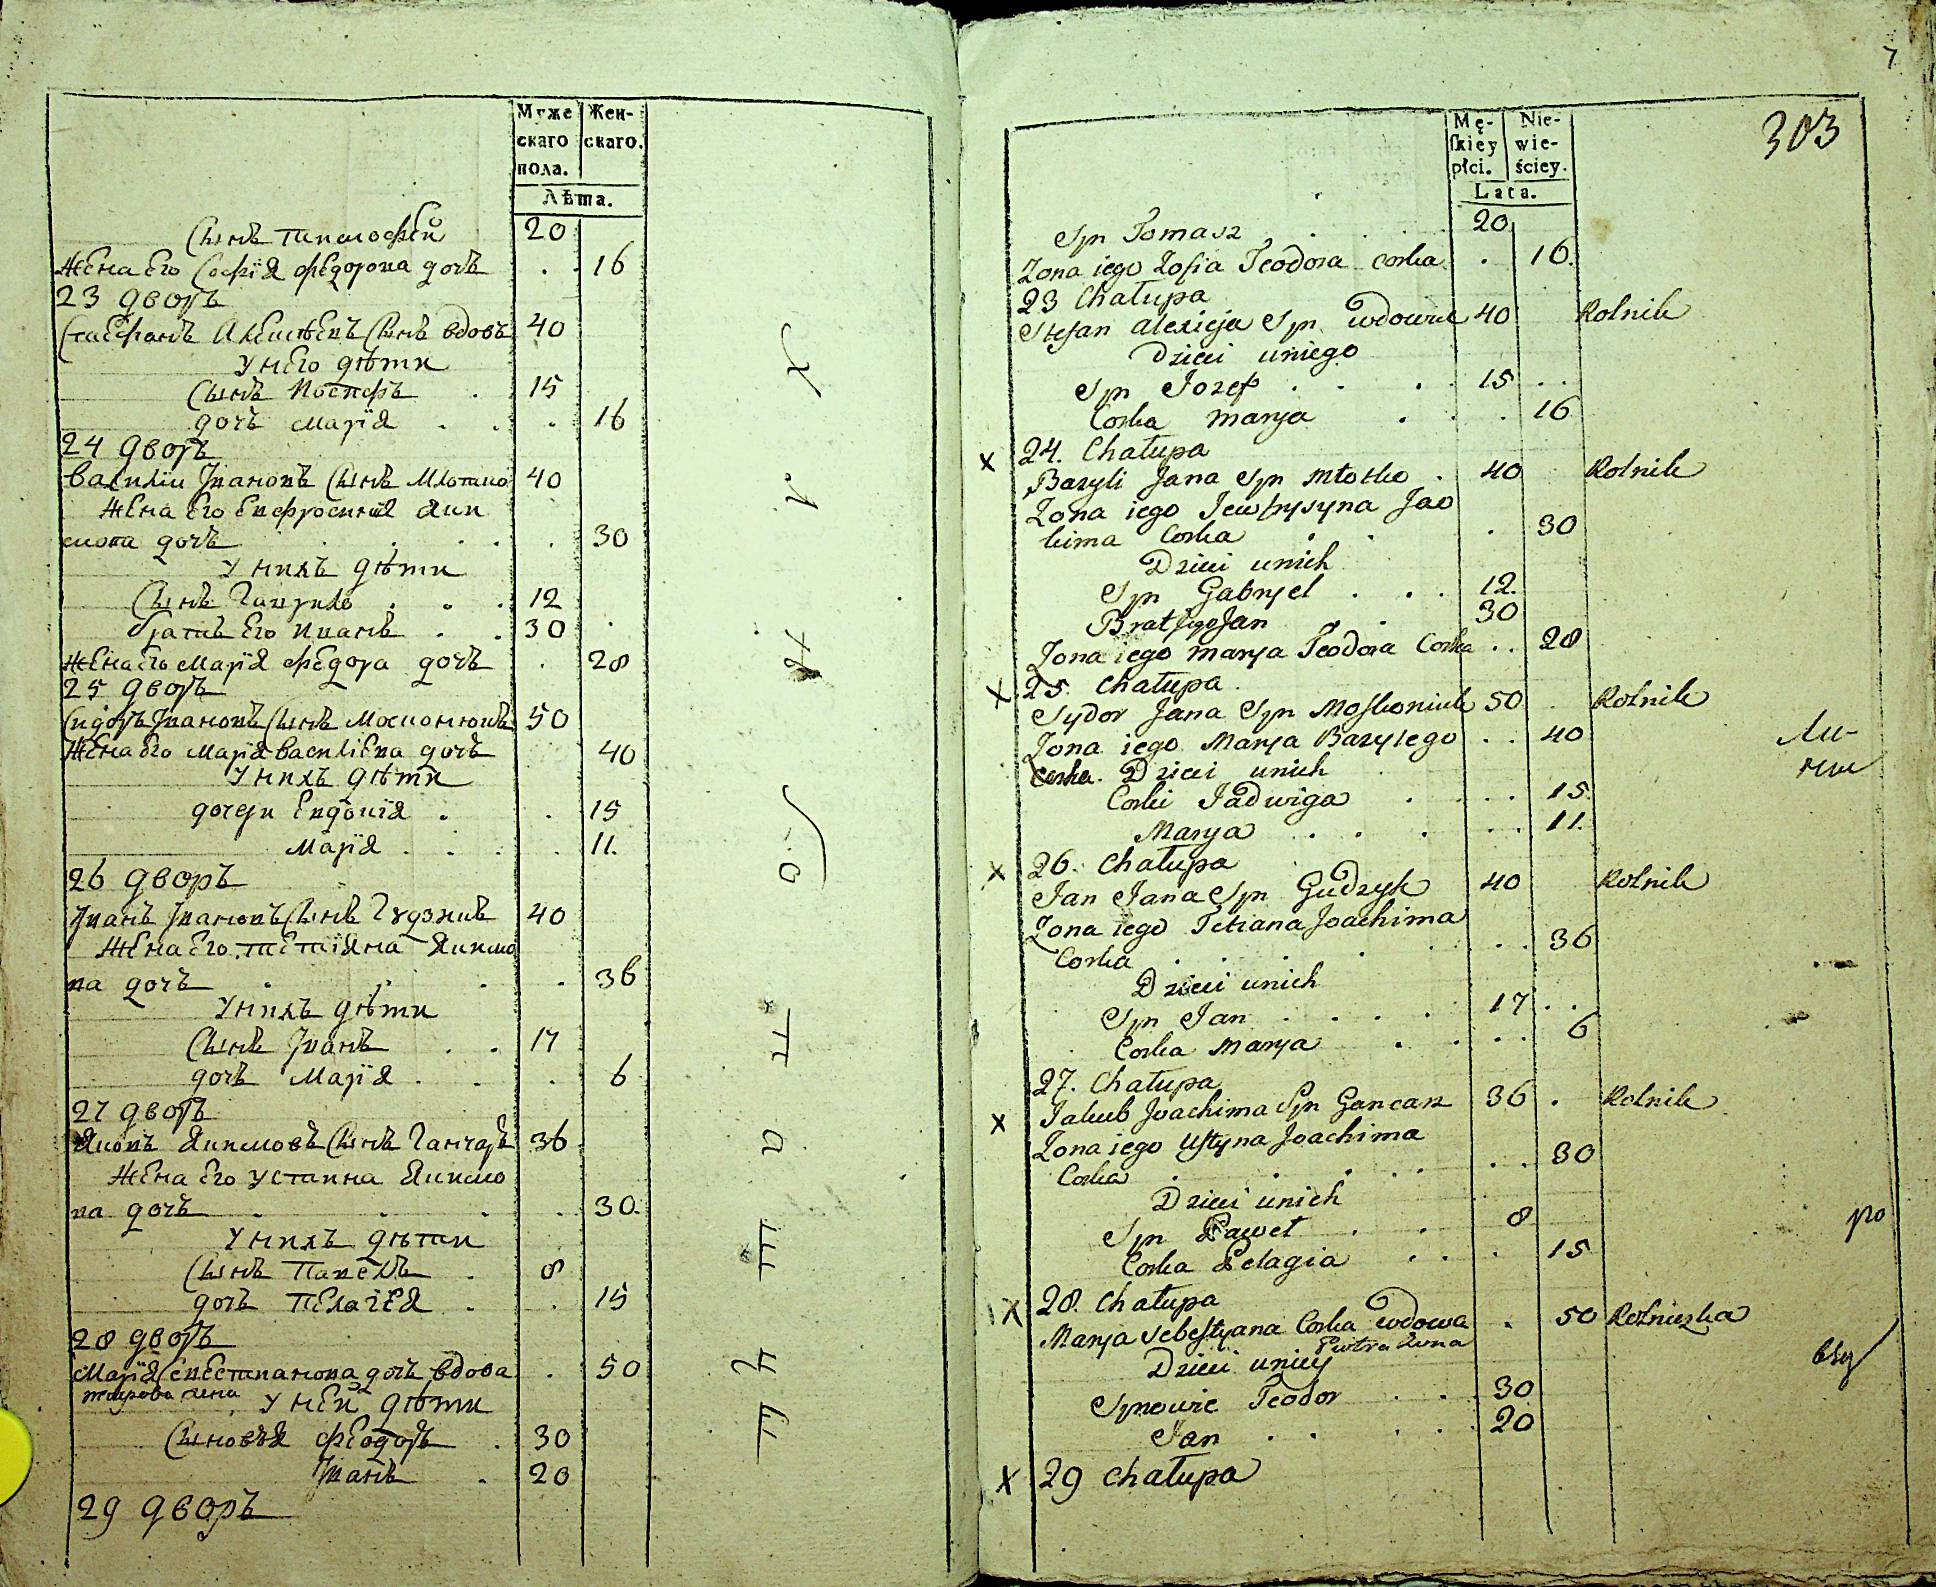 Муже
скаго
пола.
Жен-
скаго.
Лѣта.
Сынъ Тимофѣй 20
Жена Его Софїя Федорова дочь . 16
23 дворъ
Стефанъ Алексѣевъ Сынъ вдовъ 40
У него дѣти
Сынъ Иосифъ . 15
дочь Марїя . . . 16
24 дворъ
Василіи Ивановъ Сынъ Млотко 40
Жена Его Евфросинїя Яки
мова дочь . . . . 30
У нихъ дѣти
Сынъ Гаврило . . . 12
братъ Его Иванъ . . 30
Жена Его Марїя Федора дочь . 28
25 дворъ
Сидоръ Ивановъ Сынъ Москонюкъ 50
Жена Его Марїя Василіева дочь 40
У нихъ дѣти
дочери Евдокїя . . 15
Марїя . . . . 11.
26 дворъ
Иванъ Ивановъ Сынъ Гудзикъ 40
Жена Его Тетїяна Якимо
ва дочь . . . . 36
У нихъ дѣти
Сынъ Иванъ . . 17
дочь Марїя . . . 6
27 дворъ
Яковъ Якимовъ Сынъ Ганчаръ 36
Жена Его Устина Якимо
ва дочь . . . . 30.
У нихъ дѣти
Сынъ Павелъ . 8
дочь Пелагїя . . 15
28 дворъ
Марїя Севестиянова дочь вдова . 50
петрова жена У ней дѣти
Сыновья Феодоръ . 30
Иванъ . 20
29 дворъ
7
303
Mę-
skiey
płci.
Nie-
wie-
ściey.
Lata.
Syn Tomasz . . . . 20
Zona iego Zofia Teodora corka . 16.
23 Chałupa
Stefan Alexieja Syn wdowiec 40 Rolnik
Dzieci uniego
Syn Jozef . . . 15 . .
Corka Marya . . . 16
x 24. Chałupa
Bazyli Jana Syn Młotko . 40 Rolnik
Zona iego Jewfrysyna Jao
kima Corka . . . 30
Dzieci unich
Syn Gabryel . . . 12.
Brat Jego Jan . 30
Zona iego Marya Teodora Corka . . 28
x 25. Chałupa
Sydor Jana Syn Moskoniuk 50 . Rolnik
Zona iego Marya Bazylego . . 40
Corka. Dzieci unich
Corki Jadwiga . . . 15.
Marya . . . . . 11.
x 26. Chałupa
Jan Jana Syn Gudzyk 40 Rolnik
Zona iego Tetiana Joachima
Corka . . . . . . 36
Dzieci unich
Syn Jan . . . . 17 . .
Corka Marya . . . . 6
27. Chałupa
x Jakub Joachima Syn Gancarz 36 . Rolnik
Zona iego Ustyna Joachima
Corka . . . . . . 30
Dzieci unich
Syn Paweł . . 8
Corka Pelagia . . . 15
x 28. Chałupa
Marya Sebestyana Corka wdowa . 50 Rolniczka
Piotra zona
Dzieci uniey
Synowie Teodor . . . 30
Jan . . . . . 20
x 29 Chałupa